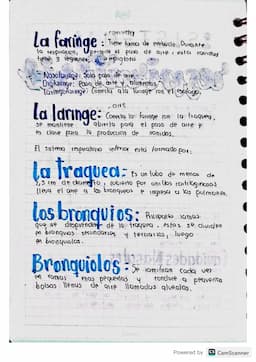 La faringe: Tiene forma de embudo. Durante
la respiración, permite el paso de aire, está
tiene 3 regiones:
Nasofaringe: Solo paso de aire
Orofaringe: Paso de aire y
Laringofaringe: Conecta la faringe con el esófago.
La laringe: Conecta la faringe con la traquea,
se mantiene abierta para el paso de aire y
es clave para la producción de sonidos.
El sistema respiratorio inferior está formado por:
La traquea: Es un tubo de menos de
2,5 cm de diametro, sostenido por anillos cartilaginosos
lleva el aire a los bronquios e ingresa a los pulmones.
Los bronquios: Pequeños ramas
que se desprenden de la traquea, estas se dividen
en bronquios secundarios y terciarios, luego
en bronquiolos.
Bronquiolos: Se ramifican cada vez
en ramas mas pequeñas y conduce a pequeñas
bolsas llenas de aire llamadas alveolos.
Powered by CS CamScanner